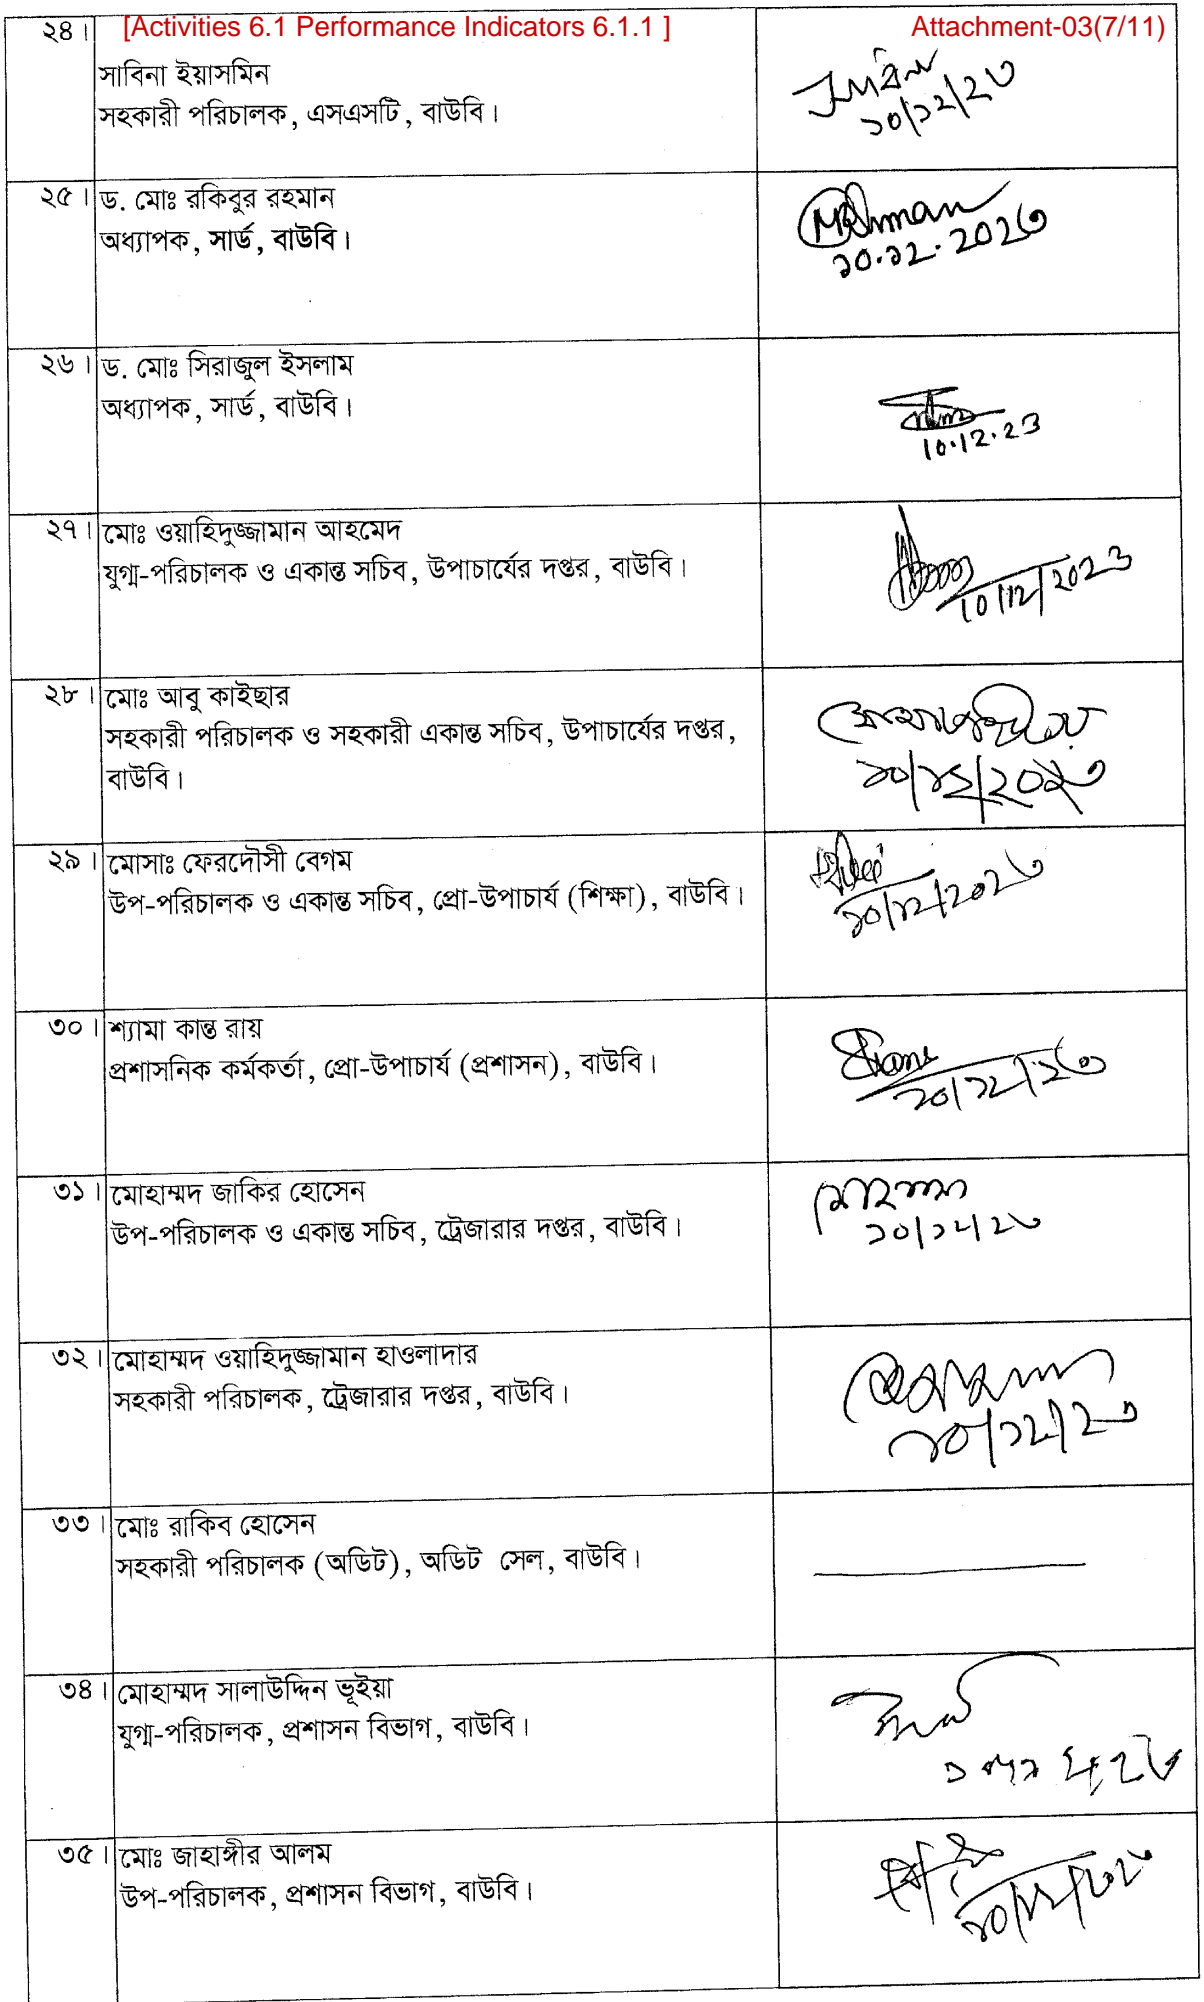 ২৪। [Activities 6.1 Performance Indicators 6.1.1 ] Attachment-03(7/11)
সাবিনা ইয়াসমিন
সহকারী পরিচালক, এসএসটি, বাউবি।
১০/১২/২৩
২৫। ড. মোঃ রকিবুর রহমান
অধ্যাপক, সার্ড, বাউবি।
১০.১২.২০২৩
২৬। ড. মোঃ সিরাজুল ইসলাম
অধ্যাপক, সার্ড, বাউবি।
10.12.23
২৭। মোঃ ওয়াহিদুজ্জামান আহমেদ
যুগ্ম-পরিচালক ও একান্ত সচিব, উপাচার্যের দপ্তর, বাউবি।
10/12/2023
২৮। মোঃ আবু কাইছার
সহকারী পরিচালক ও সহকারী একান্ত সচিব, উপাচার্যের দপ্তর,
বাউবি।
১০/১২/২০২৩
২৯। মোসাঃ ফেরদৌসী বেগম
উপ-পরিচালক ও একান্ত সচিব, প্রো-উপাচার্য (শিক্ষা), বাউবি।
১০/১২/২০২৩
৩০। শ্যামা কান্ত রায়
প্রশাসনিক কর্মকর্তা, প্রো-উপাচার্য (প্রশাসন), বাউবি।
১০/১২/২৩
৩১। মোহাম্মদ জাকির হোসেন
উপ-পরিচালক ও একান্ত সচিব, ট্রেজারার দপ্তর, বাউবি।
১০/১২/২৩
৩২। মোহাম্মদ ওয়াহিদুজ্জামান হাওলাদার
সহকারী পরিচালক, ট্রেজারার দপ্তর, বাউবি।
১০/১২/২৩
৩৩। মোঃ রাকিব হোসেন
সহকারী পরিচালক (অডিট), অডিট সেল, বাউবি।
৩৪। মোহাম্মদ সালাউদ্দিন ভূইয়া
যুগ্ম-পরিচালক, প্রশাসন বিভাগ, বাউবি।
৩৫। মোঃ জাহাঙ্গীর আলম
উপ-পরিচালক, প্রশাসন বিভাগ, বাউবি।